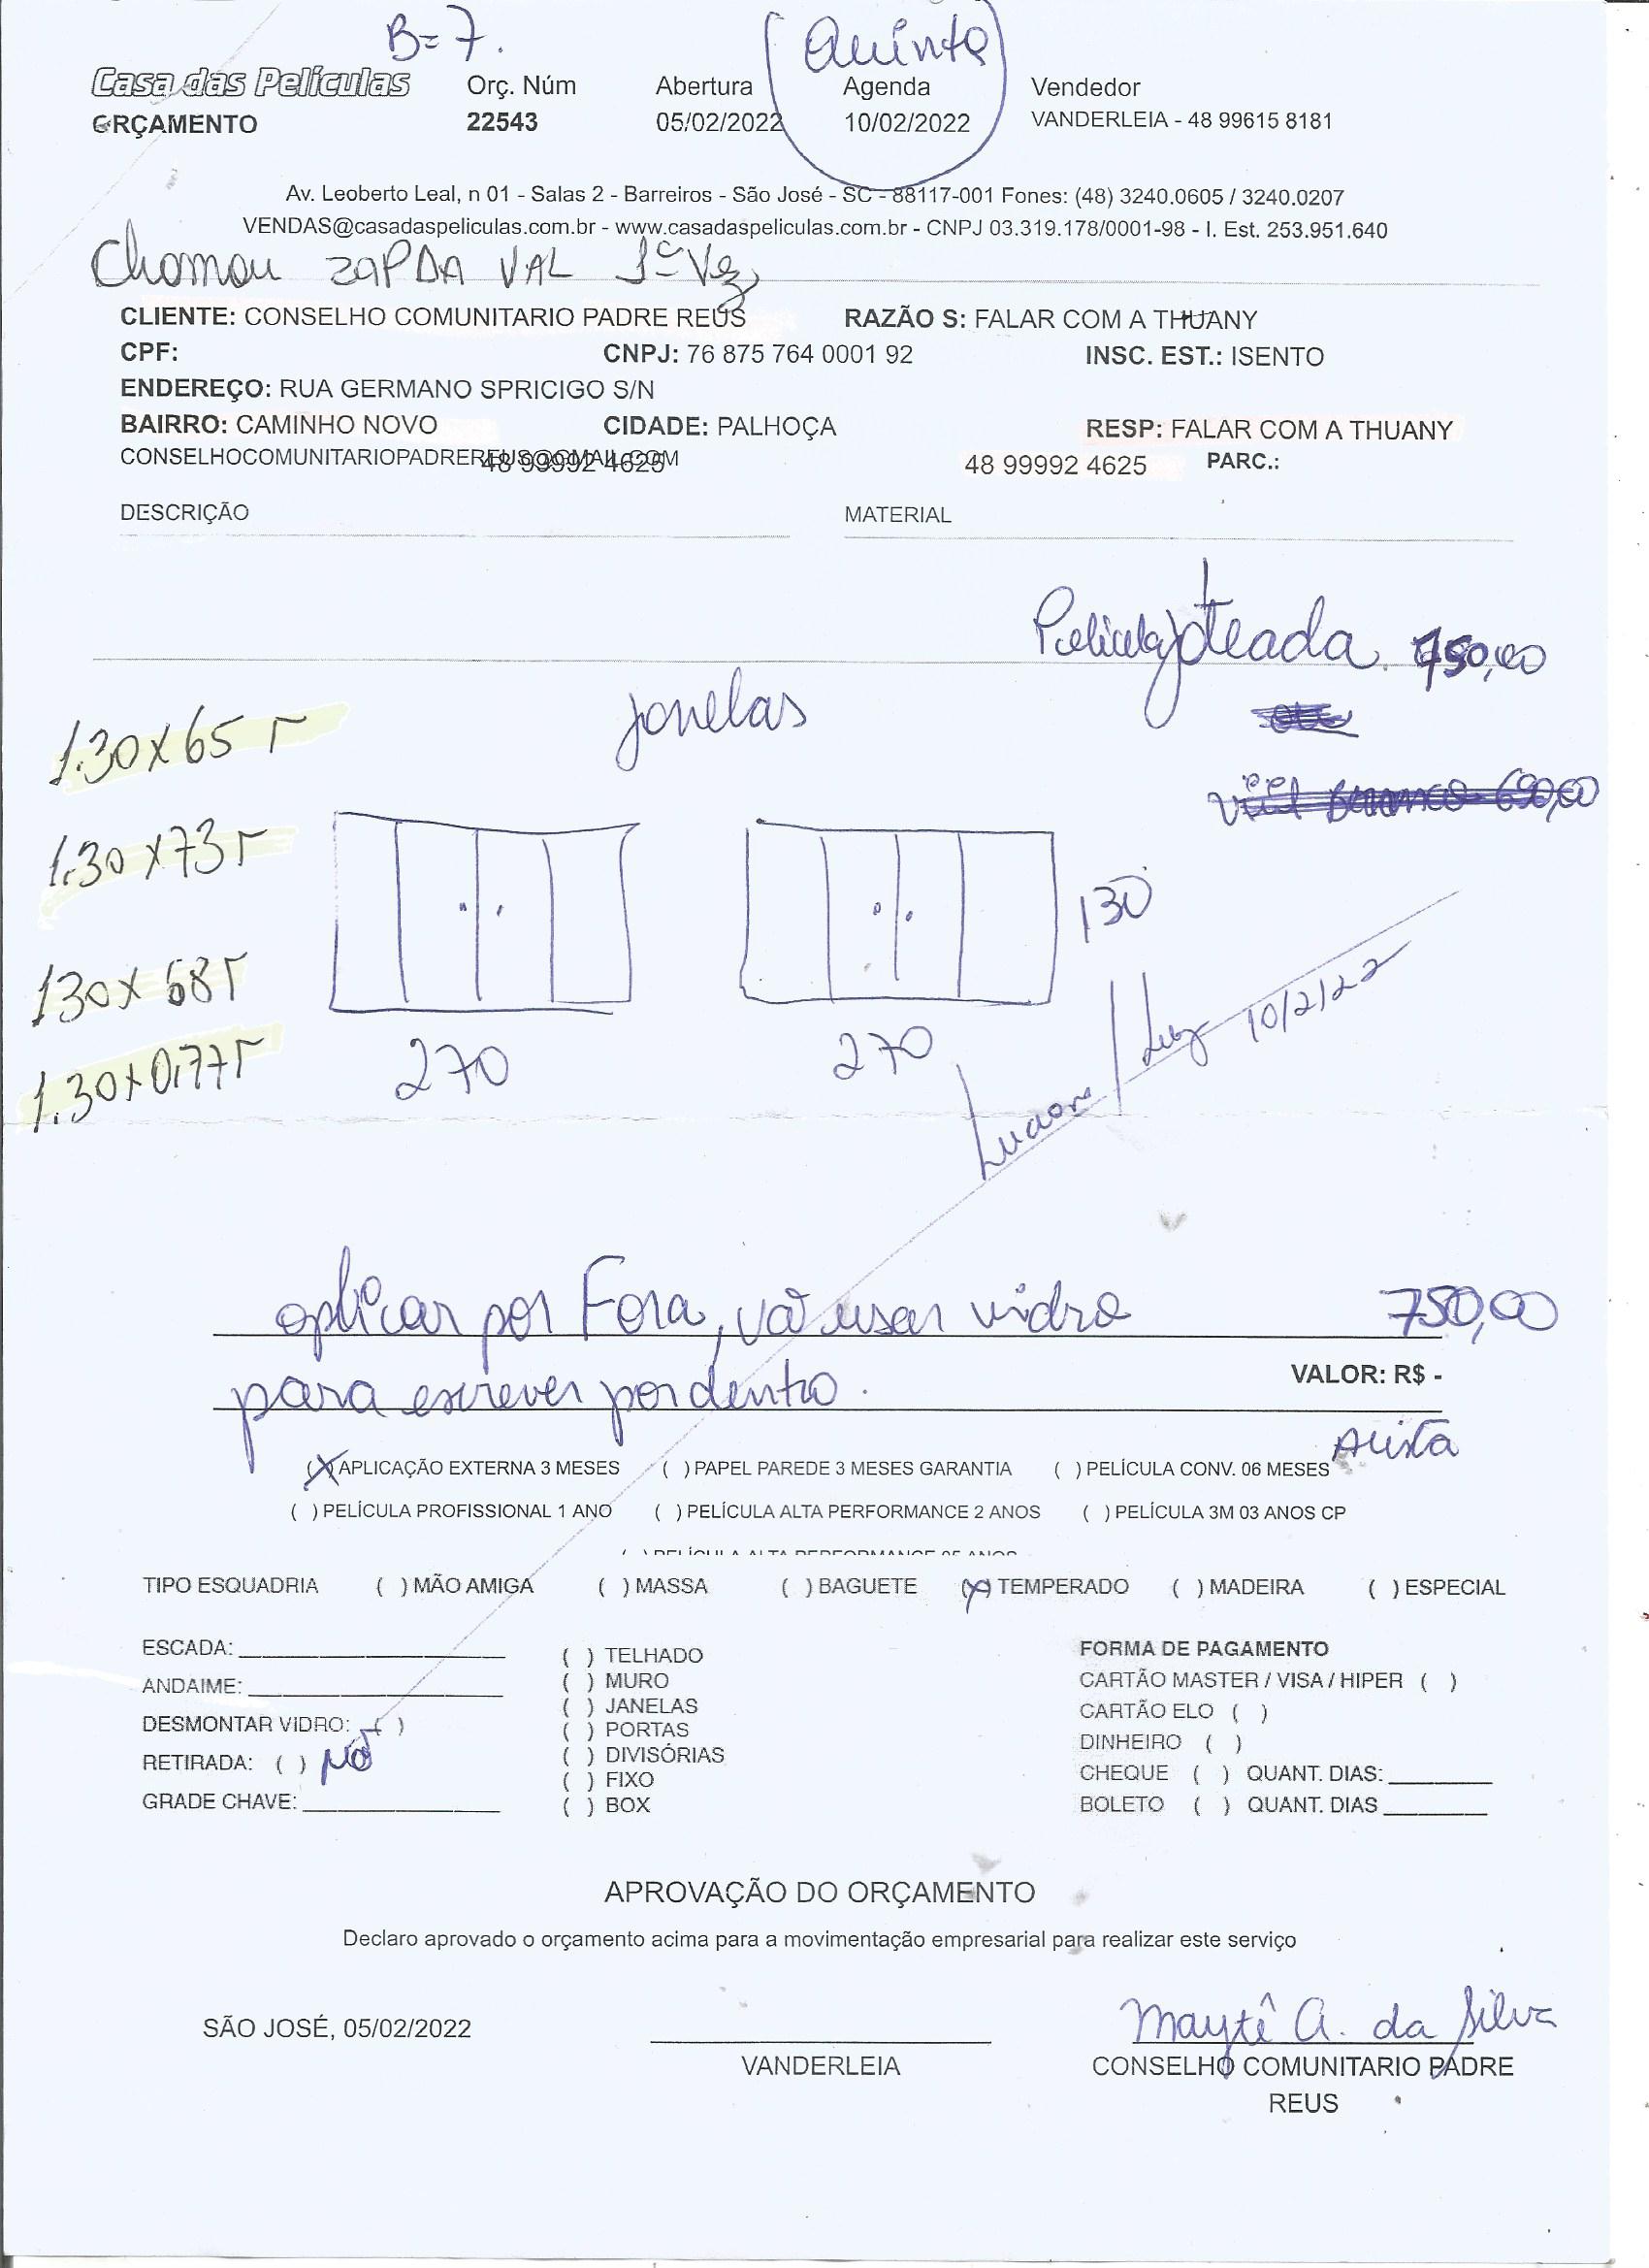 B=7.
Quinta
Casa das Películas
Orç. Núm
Abertura
Agenda
Vendedor
ORÇAMENTO
22543
05/02/2022
10/02/2022
VANDERLEIA - 48 99615 8181
Av. Leoberto Leal, n 01 - Salas 2 - Barreiros - São José - SC - 88117-001 Fones: (48) 3240.0605 / 3240.0207
VENDAS@casadaspeliculas.com.br - www.casadaspeliculas.com.br - CNPJ 03.319.178/0001-98 - I. Est. 253.951.640
Chamou ZAP DA VAL 1ª Vez
CLIENTE: CONSELHO COMUNITARIO PADRE REUS RAZÃO S: FALAR COM A THUANY
CPF: CNPJ: 76 875 764 0001 92 INSC. EST.: ISENTO
ENDEREÇO: RUA GERMANO SPRICIGO S/N
BAIRRO: CAMINHO NOVO CIDADE: PALHOÇA RESP: FALAR COM A THUANY
CONSELHOCOMUNITARIOPADREREUS@GMAIL.COM 48 99992 4625 48 99992 4625 PARC.:
DESCRIÇÃO MATERIAL
Pelicula jateada. 750,00
janelas
1.30x65
1.30x73
130x68
1.30x0,77
130
270
270
10/2/22
aplicar por Fora, vai usar vidro 750,00
VALOR: R$ -
para escrever por dentro.
Avista
(X) APLICAÇÃO EXTERNA 3 MESES ( ) PAPEL PAREDE 3 MESES GARANTIA ( ) PELÍCULA CONV. 06 MESES
( ) PELÍCULA PROFISSIONAL 1 ANO ( ) PELÍCULA ALTA PERFORMANCE 2 ANOS ( ) PELÍCULA 3M 03 ANOS CP
( ) PELÍCULA ALTA PERFORMANCE 05 ANOS
TIPO ESQUADRIA ( ) MÃO AMIGA ( ) MASSA ( ) BAGUETE (X) TEMPERADO ( ) MADEIRA ( ) ESPECIAL
ESCADA:
ANDAIME:
DESMONTAR VIDRO: ( )
RETIRADA: ( ) Não
GRADE CHAVE:
( ) TELHADO
( ) MURO
( ) JANELAS
( ) PORTAS
( ) DIVISÓRIAS
( ) FIXO
( ) BOX
FORMA DE PAGAMENTO
CARTÃO MASTER / VISA / HIPER ( )
CARTÃO ELO ( )
DINHEIRO ( )
CHEQUE ( ) QUANT. DIAS:
BOLETO ( ) QUANT. DIAS
APROVAÇÃO DO ORÇAMENTO
Declaro aprovado o orçamento acima para a movimentação empresarial para realizar este serviço
SÃO JOSÉ, 05/02/2022
Maytê A. da Silva
VANDERLEIA
CONSELHO COMUNITARIO PADRE
REUS